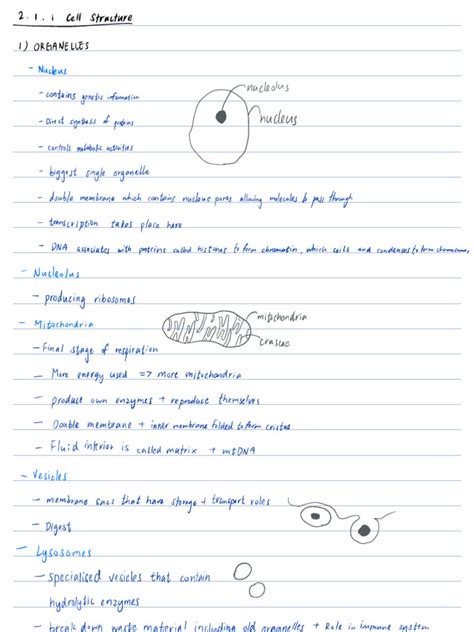 2.1.1 Cell Structure
1) ORGANELLES
- Nucleus
- contains genetic information
nucleolus
nucleus
- Direct synthesis of proteins
- controls metabolic activities
- biggest single organelle
- double membrane which contains nucleus pores allowing molecules to pass through
- transcription takes place here
- DNA associates with proteins called histones to form chromatin, which coils and condenses to form chromosomes
- Nucleolus
- producing ribosomes
- Mitochondria
mitochondria
- Final stage of respiration
- More energy used => more mitochondria
- produce own enzymes + reproduce themselves
- Double membrane + inner membrane folded to form cristae
- Fluid interior is called matrix + mtDNA
- Vesicles
- membrane sacs that have storage + transport roles
- Digest
- Lysosomes
- specialised vesicles that contain
hydrolytic enzymes
- break down waste material including old organelles + Role in immune system